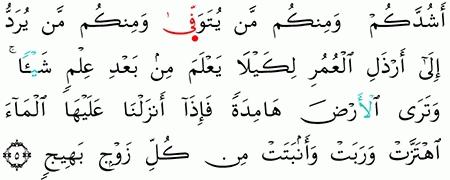 أَشُدَّكُمْ وَمِنكُم مَّن يُتَوَفَّىٰ وَمِنكُم مَّن يُرَدُّ
إِلَىٰٓ أَرْذَلِ ٱلْعُمُرِ لِكَيْلَا يَعْلَمَ مِنۢ بَعْدِ عِلْمٍ شَيْـًٔا ۚ
وَتَرَى ٱلْأَرْضَ هَامِدَةً فَإِذَآ أَنزَلْنَا عَلَيْهَا ٱلْمَآءَ
ٱهْتَزَّتْ وَرَبَتْ وَأَنۢبَتَتْ مِن كُلِّ زَوْجٍۭ بَهِيجٍ ۝٥